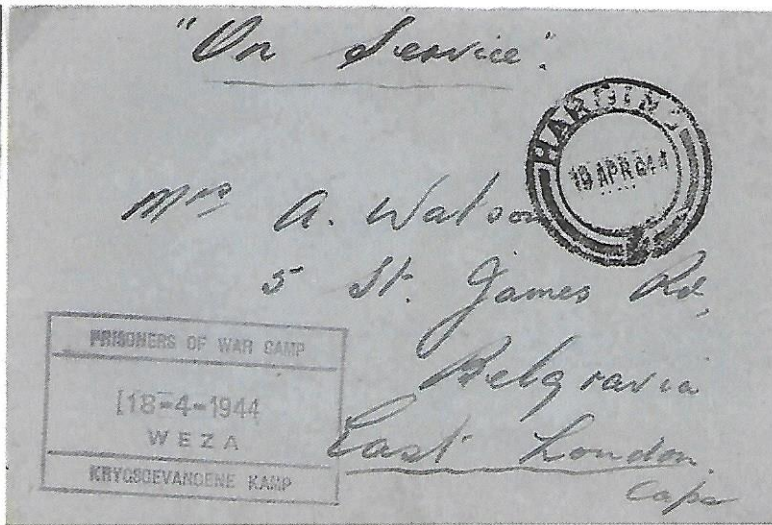 "On Service".
HARDING
19 APR 44
Mrs A. Watson
5 St. James Rd,
Belgravia
East London.
Cape
PRISONERS OF WAR CAMP
18-4-1944
WEZA
KRYGSGEVANGENE KAMP